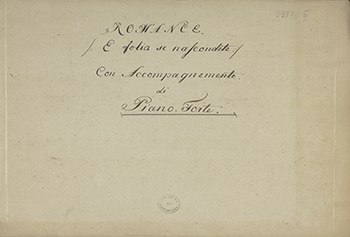 ROMANCE.
/ E folia se nascondete /
Con Accompagnemente
di
Piano-Forte.